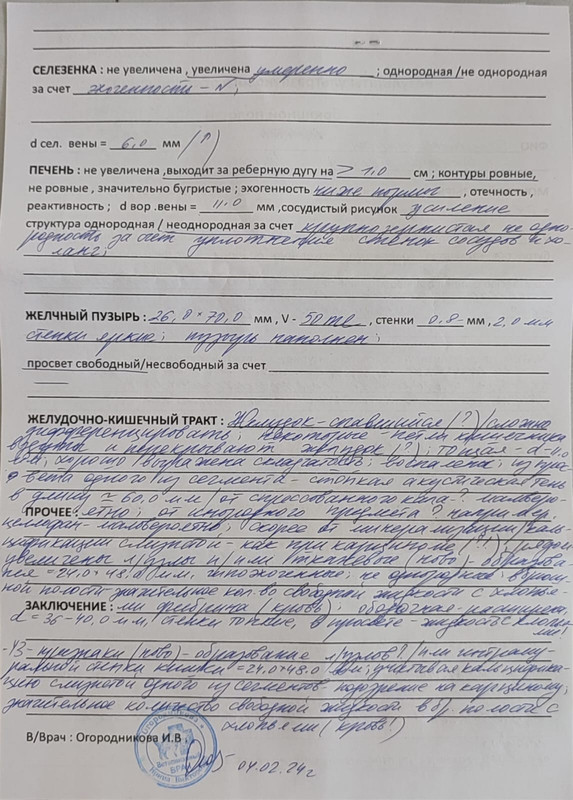 СЕЛЕЗЕНКА : не увеличена , увеличена умеренно ; однородная /не однородная
за счет эхогенность – N;
d сел. вены = 6,0 мм (↑)
ПЕЧЕНЬ : не увеличена ,выходит за реберную дугу на > 1,0 см ; контуры ровные,
не ровные , значительно бугристые ; эхогенность ниже нормы , отечность ,
реактивность ; d вор .вены = 11.0 мм ,сосудистый рисунок усиление
структура однородная / неоднородная за счет крупнозернистая не одно-
родность за счет уплотнения стенок сосудов и хо-
ланг;
ЖЕЛЧНЫЙ ПУЗЫРЬ : 26,0 × 70,0 мм , V - 50 ml , стенки 0.8 – мм , 2,0 мм
стенки яркие; пузырь наполнен;
просвет свободный/несвободный за счет
ЖЕЛУДОЧНО-КИШЕЧНЫЙ ТРАКТ : Желудок – спавшийся (?) (сложно
дифференцировать; некоторые петли кишечника
вздуты и перекрывают желудок ?); тощая – d
хорошо выражена складчатость; воспалена; из прос-
вета одного из сегмента – стойкая акустическая тень
в длину ≈ 60,0 мм (от спрессованного кала? маловеро-
ПРОЧЕЕ : ятно; от инородного предмета? напри мер.
целлофан – маловероятно; скорее от минерализации/каль-
цификации слизистой – как при карциноме (?!) рядом
увеличены л/узлы и/или тканевое (ново)-образова-
ние = 24.0 × 48.0 мм. гипоэхогенные; не однородные; в брюш-
ной полости значительное кол-во свободной жидкости с хлопья-
ЗАКЛЮЧЕНИЕ : ми фибрина (кровь); ободочная – расширена
d = 36 – 40,0 мм; стенки тонкие, в просвете – жидкость с хлопья-
ми!
- УЗ-признаки (ново)-образование л/узлов? /или интраму-
ральной стенки кишки = 24.0 × 48.0 мм; учитывая кальцифика-
цию слизистой одного из сегментов – подозрение на карциному;
значительное количество свободной жидкости в бр. полости с
хлопьями (кровь!)
В/Врач : Огородникова И.В .
ВРАЧ
04.02.24г